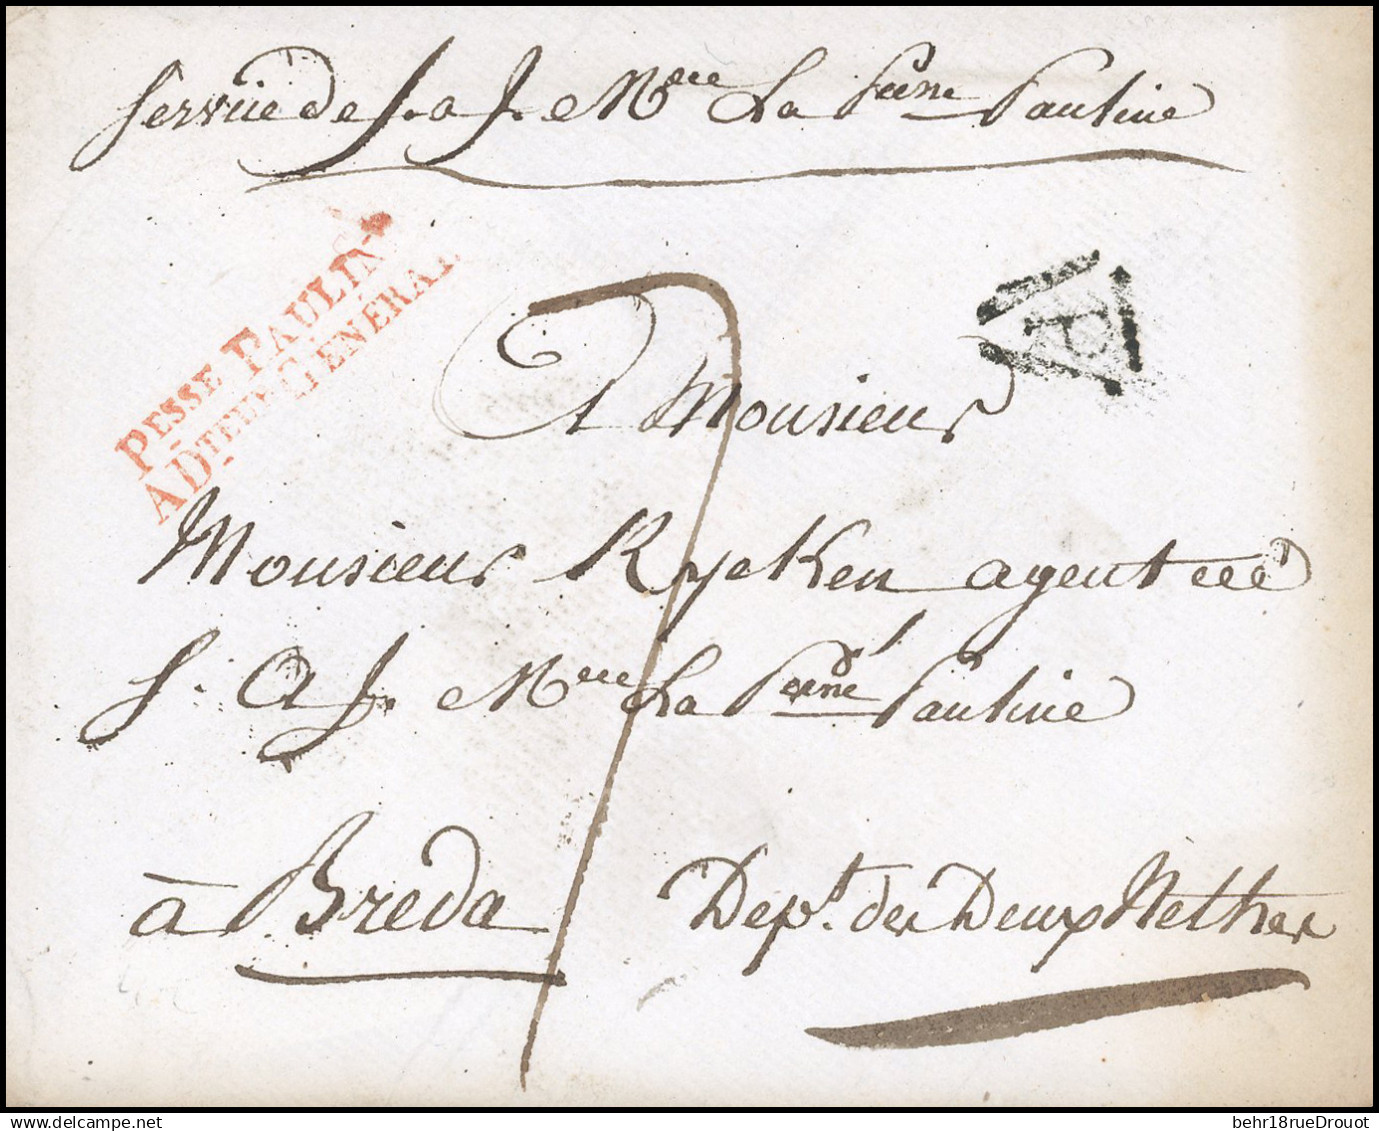 Service de S. a J. Mme La Psse Pauline
PESSE PAULIN
ADTEUR GÉNÉRAL
A Monsieur
7
Monsieur Rycken agent de
S. A J. Mme La Psse Pauline
à Breda Dept. des Deux Nethes
behr18rueDrouot